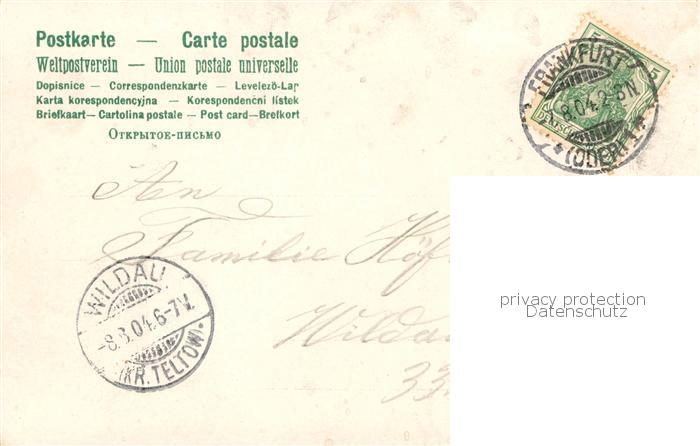 Postkarte — Carte postale
Weltpostverein — Union postale universelle
Dopisnice — Correspondenzkarte — Levelező-Lap
Karta korespondencyjna — Korespondenční lístek
Briefkaart—Cartolina postale — Post card—Brefkort
Открытое-письмо
FRANKFURT
8.04.2-3N
* (ODER) 1 *
5
An
Familie Höf
Wildau
33
WILDAU
-8.3.04.6-7V.
(KR. TELTOW)
privacy protection
Datenschutz